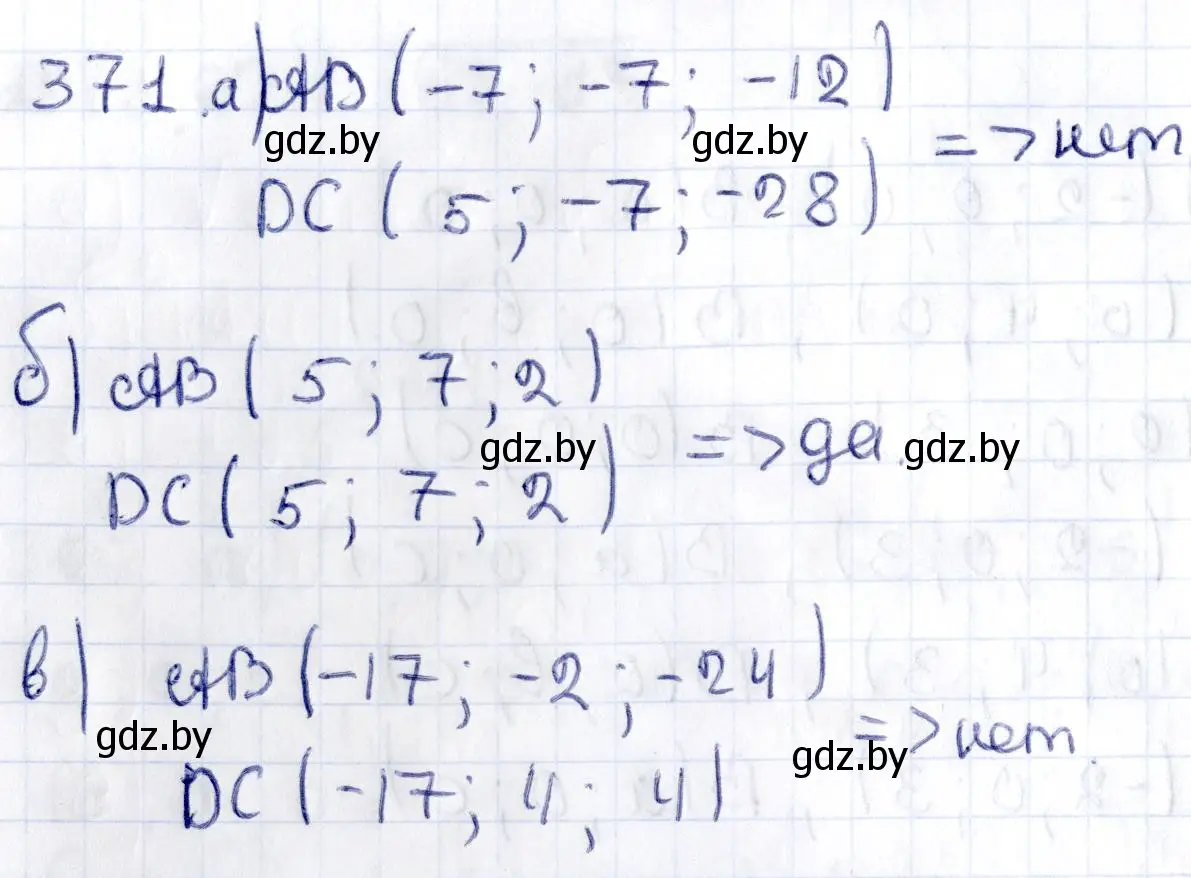 371.а) AB(-7; -7; -12)
gdz.by gdz.by => нет
DC (5; -7; -28)
б) AB(5; 7; 2)
gdz.by => да. gdz.by
DC(5; 7; 2)
в) AB(-17; -2; -24)
gdz.by gdz.by => нет.
DC(-17; 4; 4)